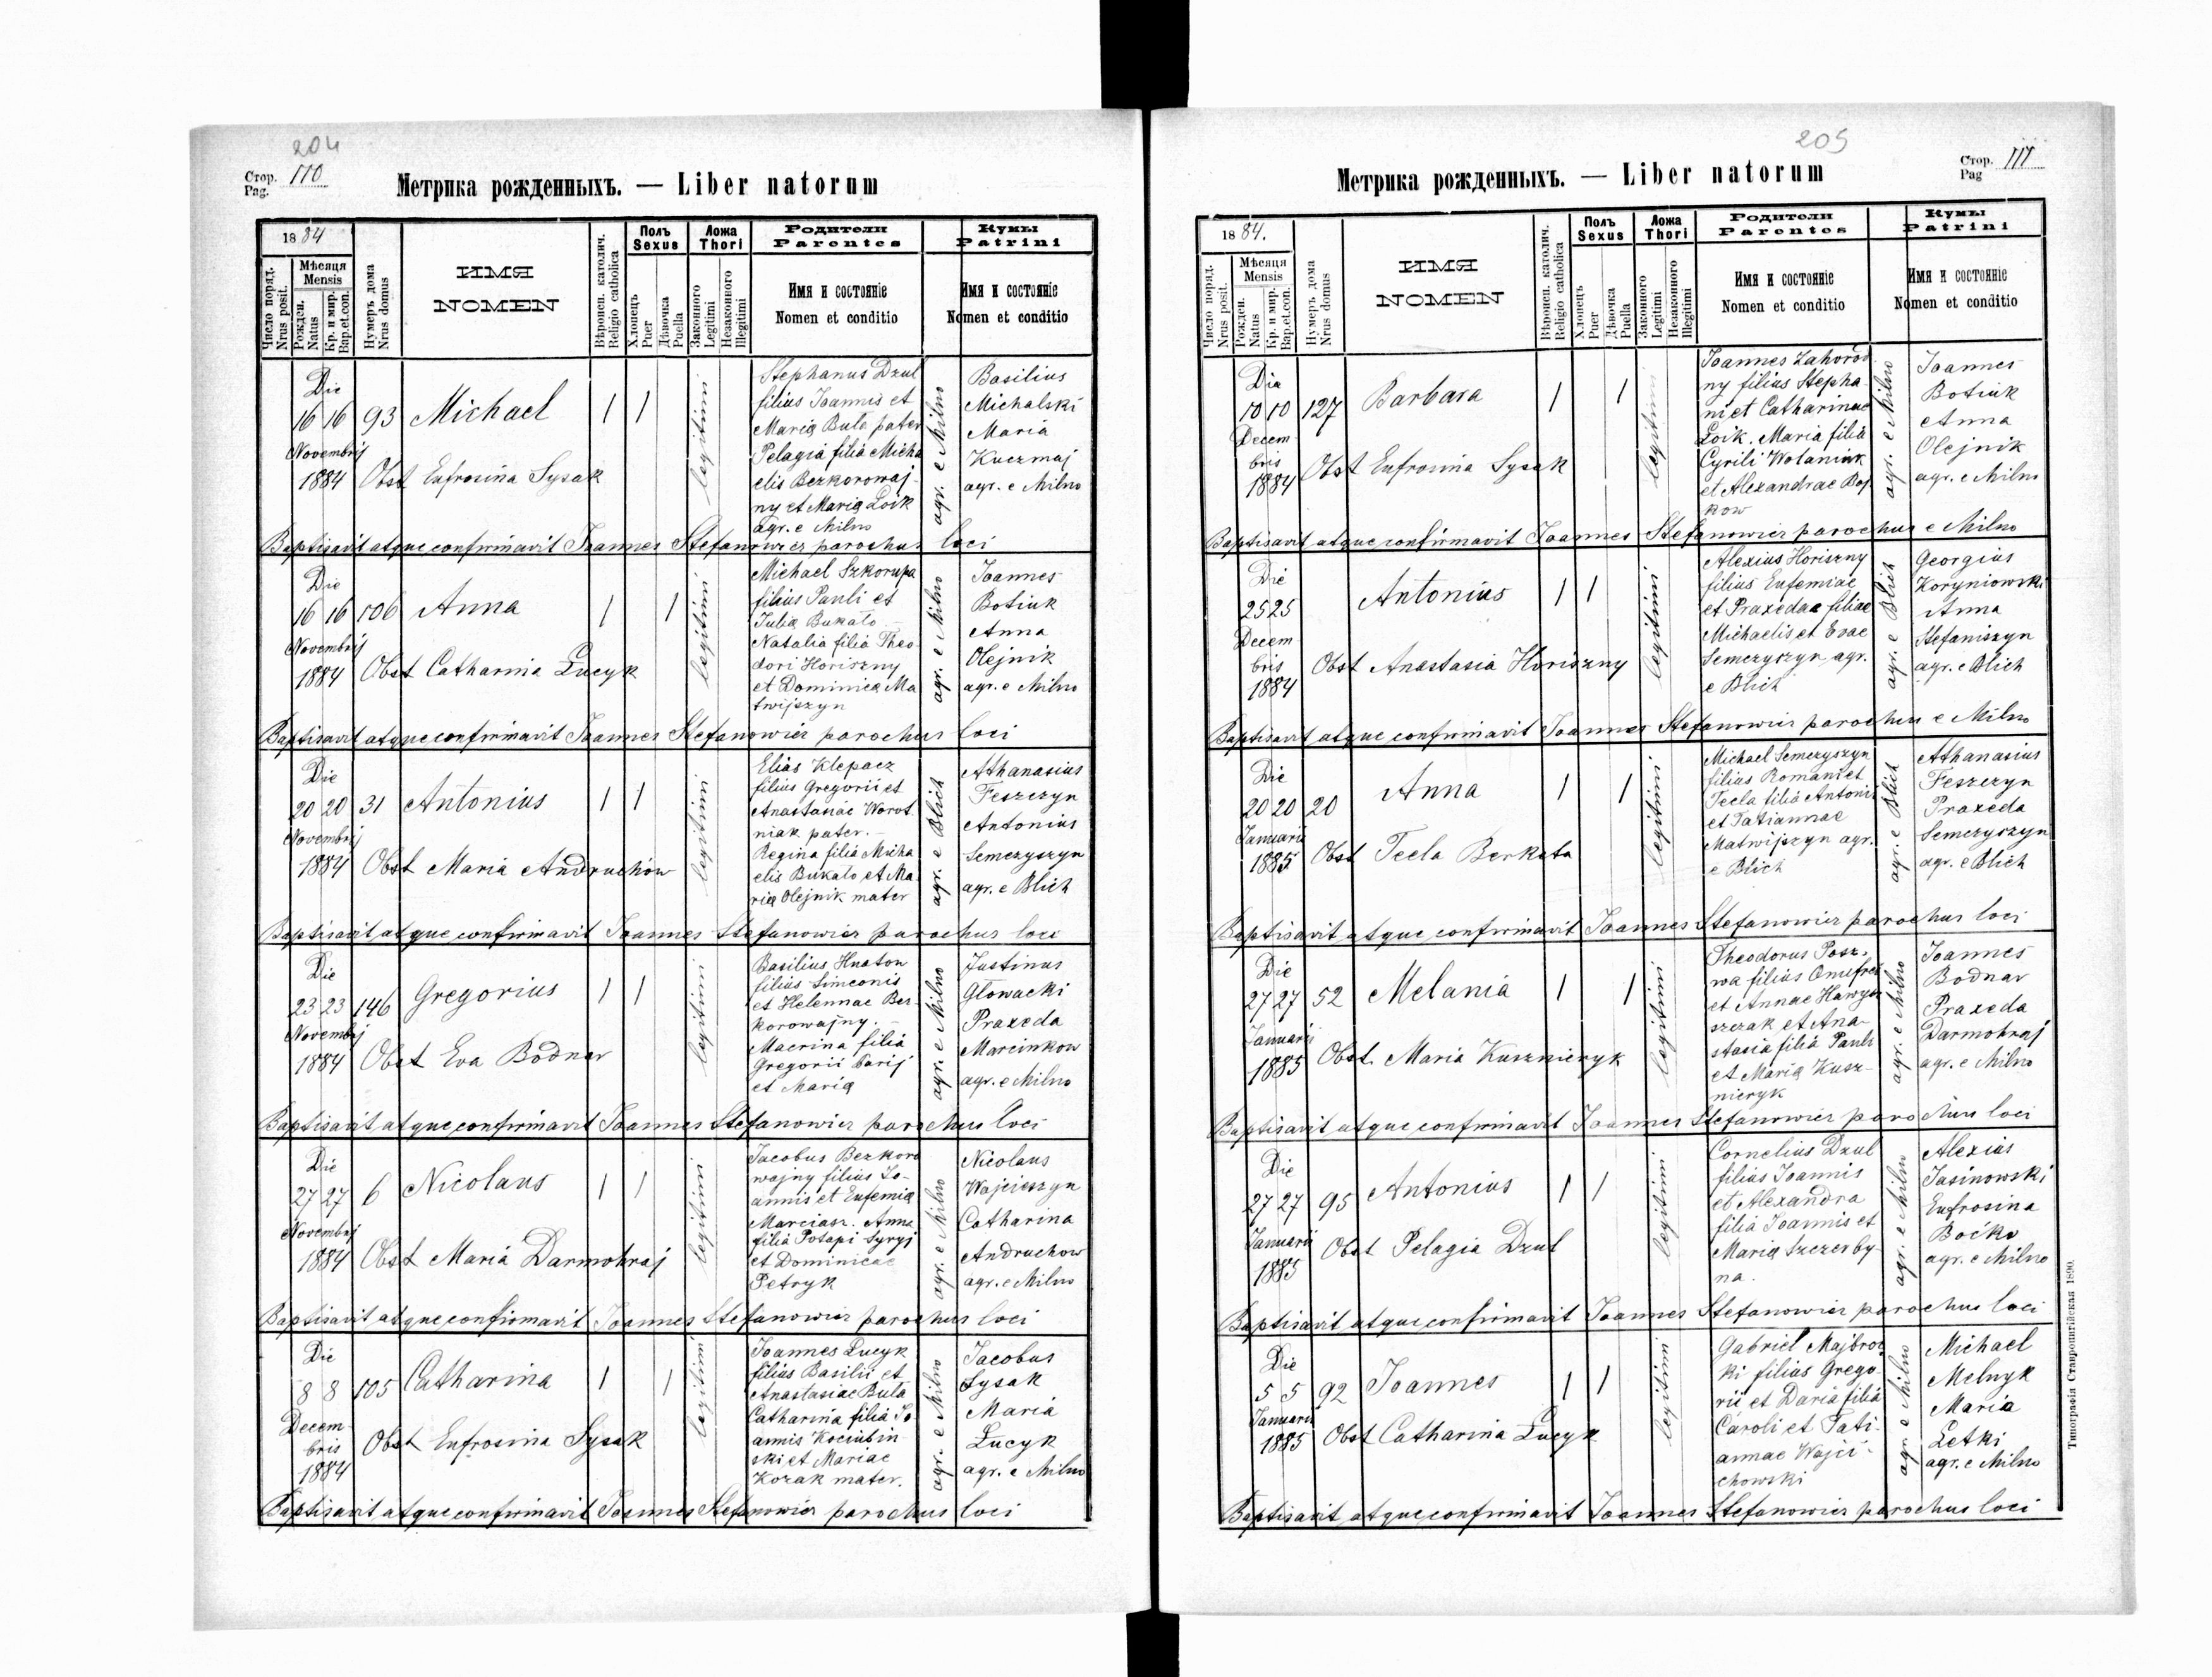 204
Стор. 110
Pag.
Метрика рожденныхъ. — Liber natorum
1884
Число поряд. Nrus posit.
Мѣсяця
Mensis
Рожден. Natus
Кр. и мир. Bap. et. con.
Нумеръ дома
Nrus domus
ИМЯ
NOMEN
Вѣроисп. католич.
Religio catholica
Полъ
Sexus
Хлопецъ
Puer
Дѣвочка
Puella
Ложа
Thori
Законного
Legitimi
Незаконного
Illegitimi
Родители
Parentes
Имя и состояніе
Nomen et conditio
Кумы
Patrini
Имя и состояніе
Nomen et conditio
Die
16 16 93 Michael 1 1
Novembrij
1884 Obst Eufrosina Sysak
legitimi
Stephanus Dzul
filius Joannis et
Maria Buta pater
Pelagia filia Micha
elis Bezkorowaj-
ny et Maria Loik
agr. e Milno
agr. e Milno
Basilius
Michalski
Maria
Kuczmaj
agr. e Milno
Baptisavit atque confirmavit Joannes Stefanowicz parochus loci
Die
16 16 106 Anna 1 1
Novembrij
1884 Obst Catharina Lucyk
legitimi
Michael Szkorupa
filius Pauli et
Julia Bukalo
Natalia filia Theo-
dori Horiszny
et Dominica Ma
twijszyn
agr. e Milno
Joannes
Botiuk
Anna
Olejnik
agr. e Milno
Baptisavit atque confirmavit Joannes Stefanowicz parochus loci
Die
20 20 31 Antonius 1 1
Novembrij
1884 Obst Maria Andruchow
legitimi
Elias Klepacz
filius Gregorii et
Anastasiae Worot
niak pater.-
Regina filia Micha
elis Bukalo et Ma
ria Olejnik mater
agr. e Blich
Athanasius
Feszczyn
Antonius
Semczyszyn
agr. e Blich
Baptisavit atque confirmavit Joannes Stefanowicz parochus loci
Die
23 23 146 Gregorius 1 1
Novembrij
1884 Obst Eva Bodnar
legitimi
Basilius Hnaton
filius Simeonis
et Helennae Bez-
korowajny.-
Macrina filia
Gregorii Barij
et Maria
agr. e Milno
Justinus
Glowacki
Praxeda
Marcinkow
agr. e Milno
Baptisavit atque confirmavit Joannes Stefanowicz parochus loci
Die
27 27 6 Nicolaus 1 1
Novembrij
1884 Obst Maria Darmohraj
legitimi
Jacobus Bezkoro
wajny filius Jo-
annis et Eufemia
Marciasz. Anna
filia Potapi Syryj
et Dominicae
Petryk
agr. e Milno
Nicolaus
Wojcieszyn
Catharina
Andruchow
agr. e Milno
Baptisavit atque confirmavit Joannes Stefanowicz parochus loci
Die
8 8 105 Catharina 1 1
Decem-
bris
1884
Obst Eufrosina Sysak
legitimi
Joannes Lucyk
filius Basilii et
Anastasiae Buta
Catharina filia Jo-
annis Kociubin
ski et Mariae
Kozak mater.
agr. e Milno
Jacobus
Sysak
Maria
Lucyk
agr. e Milno
Baptisavit atque confirmavit Joannes Stefanowicz parochus loci
205
Стор. 111
Pag
Метрика рожденныхъ. — Liber natorum
1884.
Число поряд. Nrus posit.
Мѣсяця
Mensis
Рожден. Natus
Кр. и мир. Bap. et. con.
Нумеръ дома
Nrus domus
ИМЯ
NOMEN
Вѣроисп. католич.
Religio catholica
Полъ
Sexus
Хлопецъ
Puer
Дѣвочка
Puella
Ложа
Thori
Законного
Legitimi
Незаконного
Illegitimi
Родители
Parentes
Имя и состояніе
Nomen et conditio
Кумы
Patrini
Имя и состояніе
Nomen et conditio
Die
10 10 127 Barbara 1 1
Decem-
bris
1884
Obst Eufrosina Sysak
legitimi
Joannes Zahorod
ny filius Stepha-
ni et Catharinae
Loik. Maria filia
Cyrili Wolaniuk
et Alexandrae Boj
kow
agr. e Milno
Joannes
Botiuk
Anna
Olejnik
agr. e Milno
Baptisavit atque confirmavit Joannes Stefanowicz parochus e Milno
Die
25 25 Antonius 1 1
Decem
bris
1884
Obst Anastasia Horiszny
legitimi
Alexius Horiszny
filius Eufemiae
et Praxedae filiae
Michaelis et Evae
Semczyszyn agr.
e Blich
agr. e Blich
Georgius
Koryniowski
Anna
Stefaniszyn
agr. e Blich
Baptisavit atque confirmavit Joannes Stefanowicz parochus e Milno
Die
20 20 20 Anna 1 1
Januarii
1885 Obst Tecla Berkata
legitimi
Michael Semczyszyn
filius Romani et
Tecla filia Antoni
et Tatiannae
Matwijszyn agr.
e Blich
agr. e Blich
Athanasius
Feszczyn
Praxeda
Semczyszyn
agr. e Blich
Baptisavit atque confirmavit Joannes Stefanowicz parochus loci
Die
27 27 52 Melania 1 1
Januarii
1885 Obst. Maria Kusznieryk
legitimi
Theodorus Posz-
wa filius Onufrei
et Annae Hawry
szczak et Ana-
stasia filia Pauli
et Maria Kusz-
nieryk
agr. e Milno
Joannes
Bodnar
Praxeda
Darmohraj
agr. e Milno
Baptisavit atque confirmavit Joannes Stefanowicz parochus loci
Die
27 27 95 Antonius 1 1
Januarii
1885
Obst Pelagia Dzul
legitimi
Cornelius Dzul
filius Joannis
et Alexandra
filia Joannis et
Maria Szczerby-
na.
agr. e Milno
Alexius
Jasinowski
Eufrosina
Boćko
agr. e Milno
Baptisavit atque confirmavit Joannes Stefanowicz parochus loci
Die
5 5 92 Joannes 1 1
Januarii
1885 Obst Catharina Lucyk
legitimi
Gabriel Majbroc
ki filius Grego-
rii et Daria filia
Caroli et Tati-
annae Wojci-
chowski
agr. e Milno
Michael
Melnyk
Maria
Letki
agr. e Milno
Baptisavit atque confirmavit Joannes Stefanowicz parochus loci
Типографія Ставропигійская 1890.